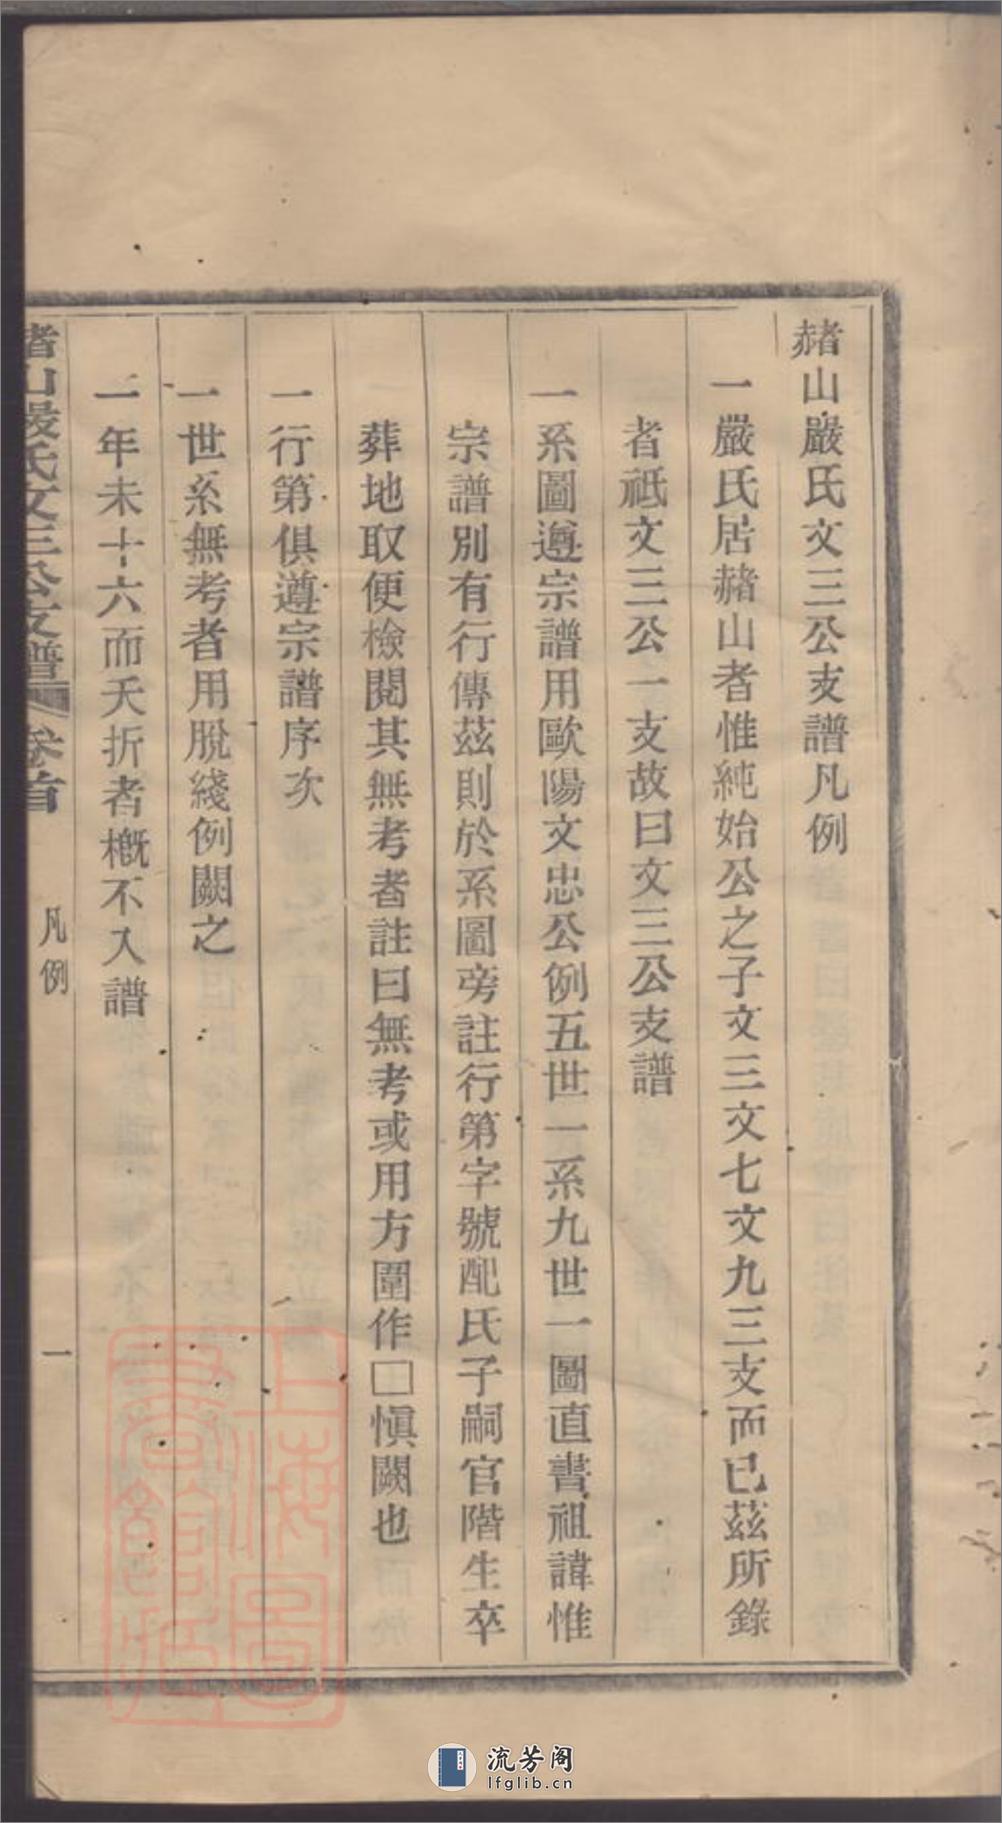 赭山嚴氏文三公支譜凡例
一嚴氏居赭山者惟純始公之子文三文七文九三支而已茲所錄
者祗文三公一支故曰文三公支譜
一系圖遵宗譜用歐陽文忠公例五世一系九世一圖直書祖諱惟
宗譜別有行傳茲則於系圖旁註行第字號配氏子嗣官階生卒
葬地取便檢閱其無考者註曰無考或用方圍作□慎闕也
一行第俱遵宗譜序次
一世系無考者用脫綫例闕之
一年未十六而夭折者概不入譜
赭山嚴氏文三公支譜 卷首 凡例 一
上海圖書館藏
流芳阁
lfglib.cn